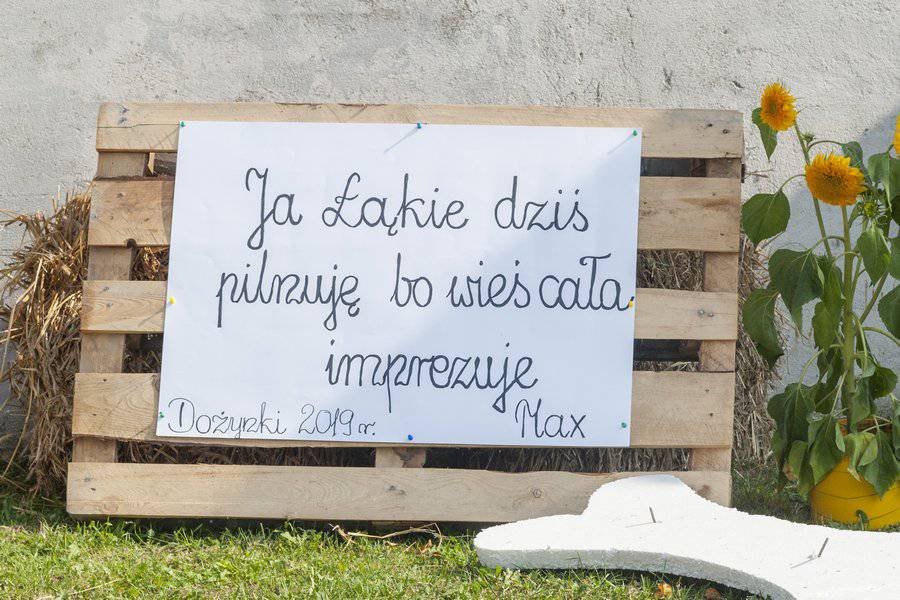 Ja Łąkie dziś
pilnuję bo wieś cała
imprezuje
Dożynki 2019 r.
Max